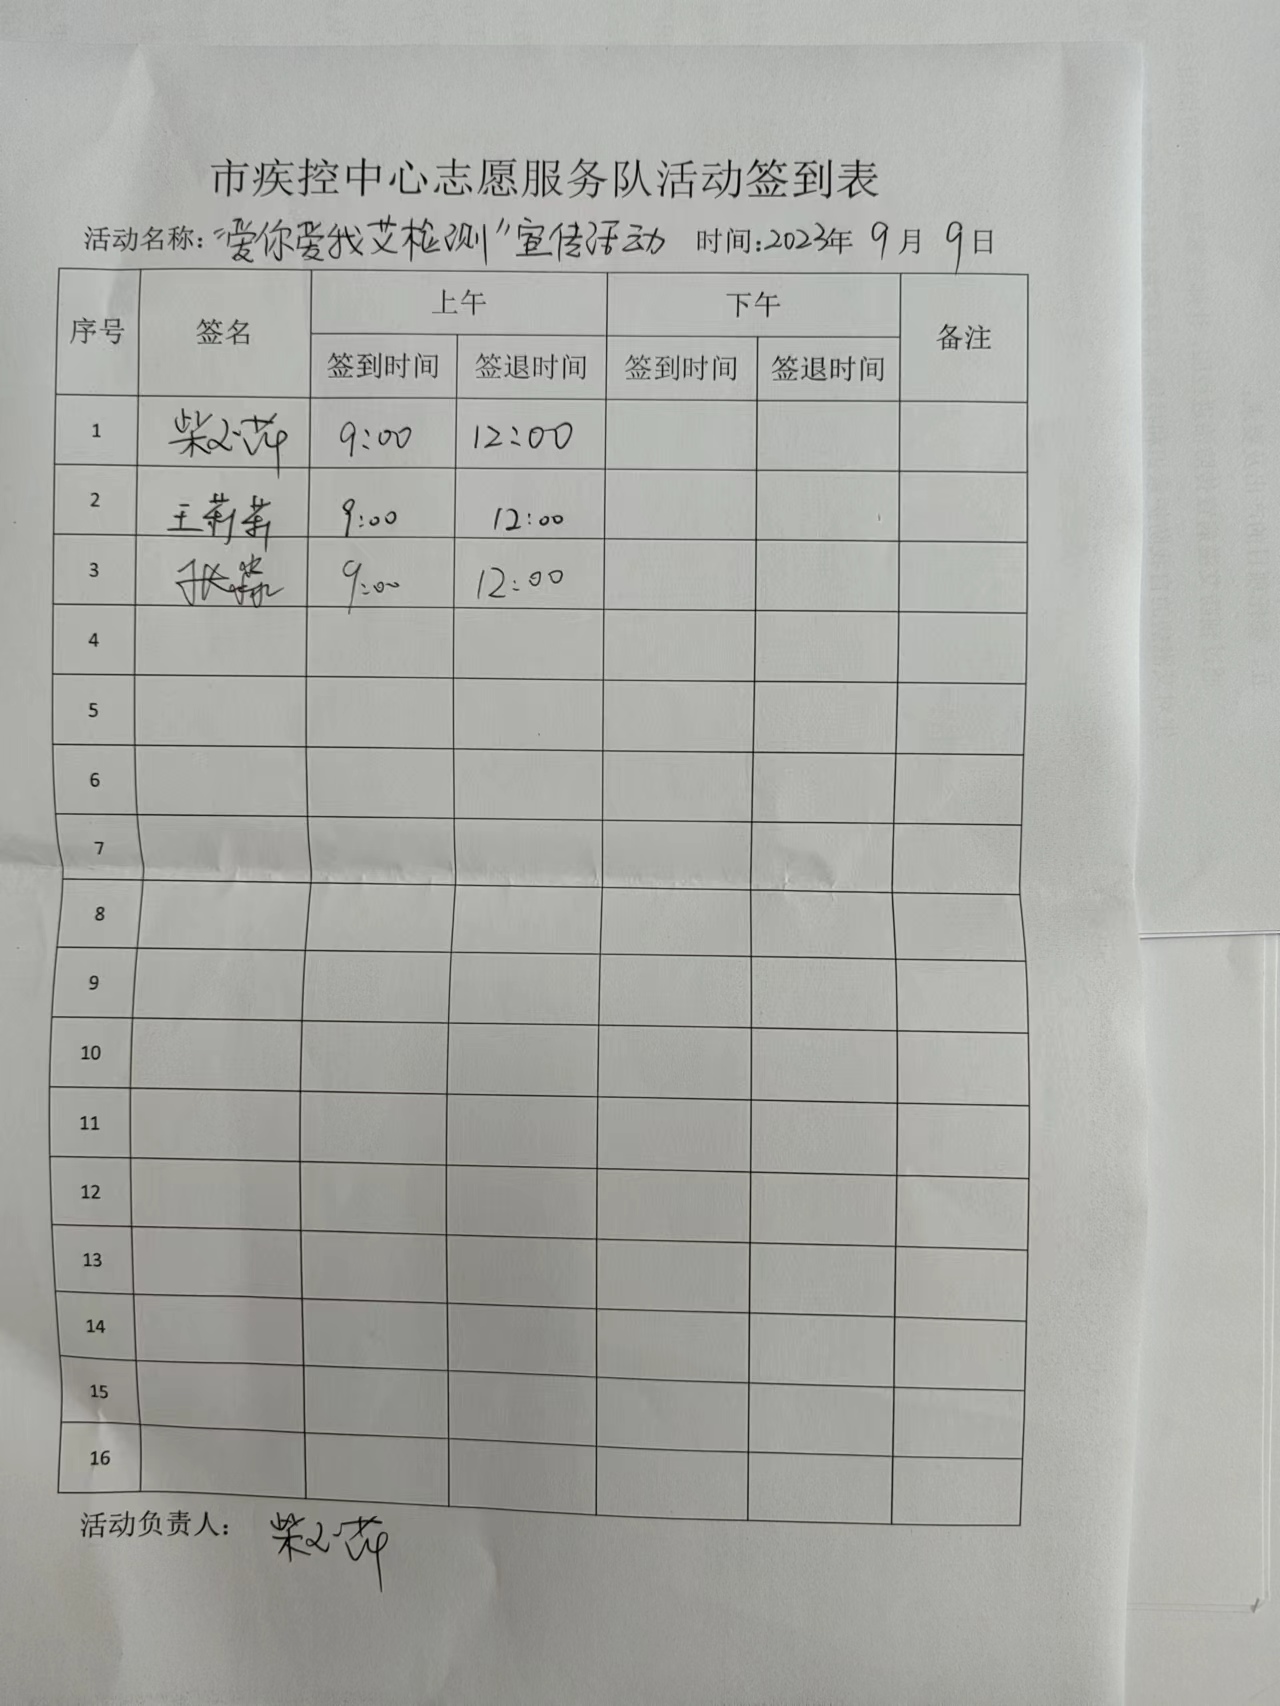 市疾控中心志愿服务队活动签到表
活动名称:“爱你爱我艾检测”宣传活动 时间:2023年 9月 9日
序号 签名 上午 下午 备注
签到时间 签退时间 签到时间 签退时间
1 柴文萍 9:00 12:00
2 王莉莉 9:00 12:00
3 张 9:00 12:00
4
5
6
7
8
9
10
11
12
13
14
15
16
活动负责人: 柴文萍